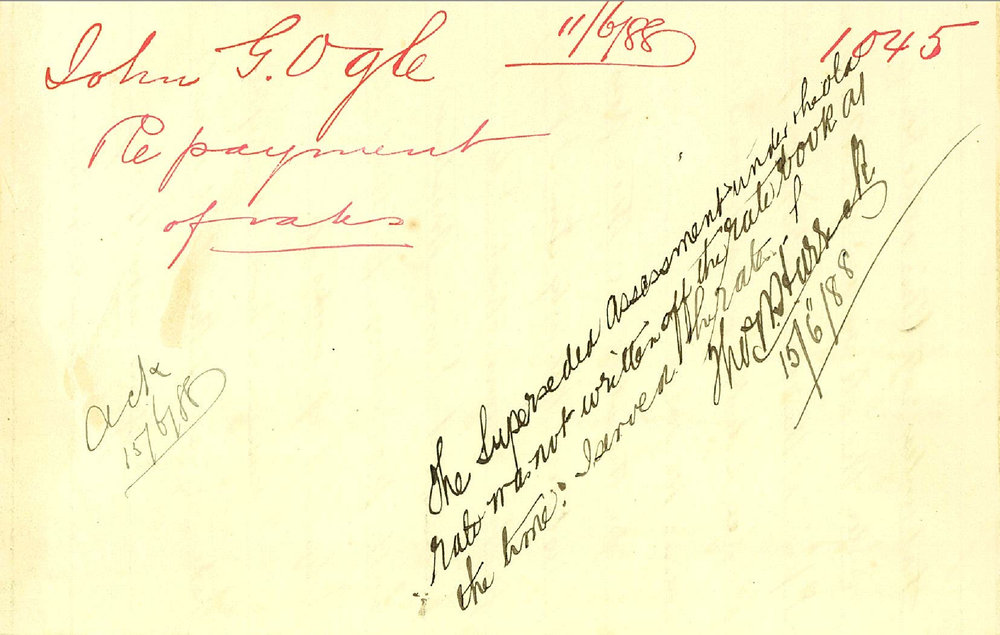 John G. Ogle
11/6/88
1045
Repayment
of rates
Ack
15/6/88
The Superseded Assessment under the old
rate was not written off the rate book at
the time. I served the rate
Thos
15/6/88